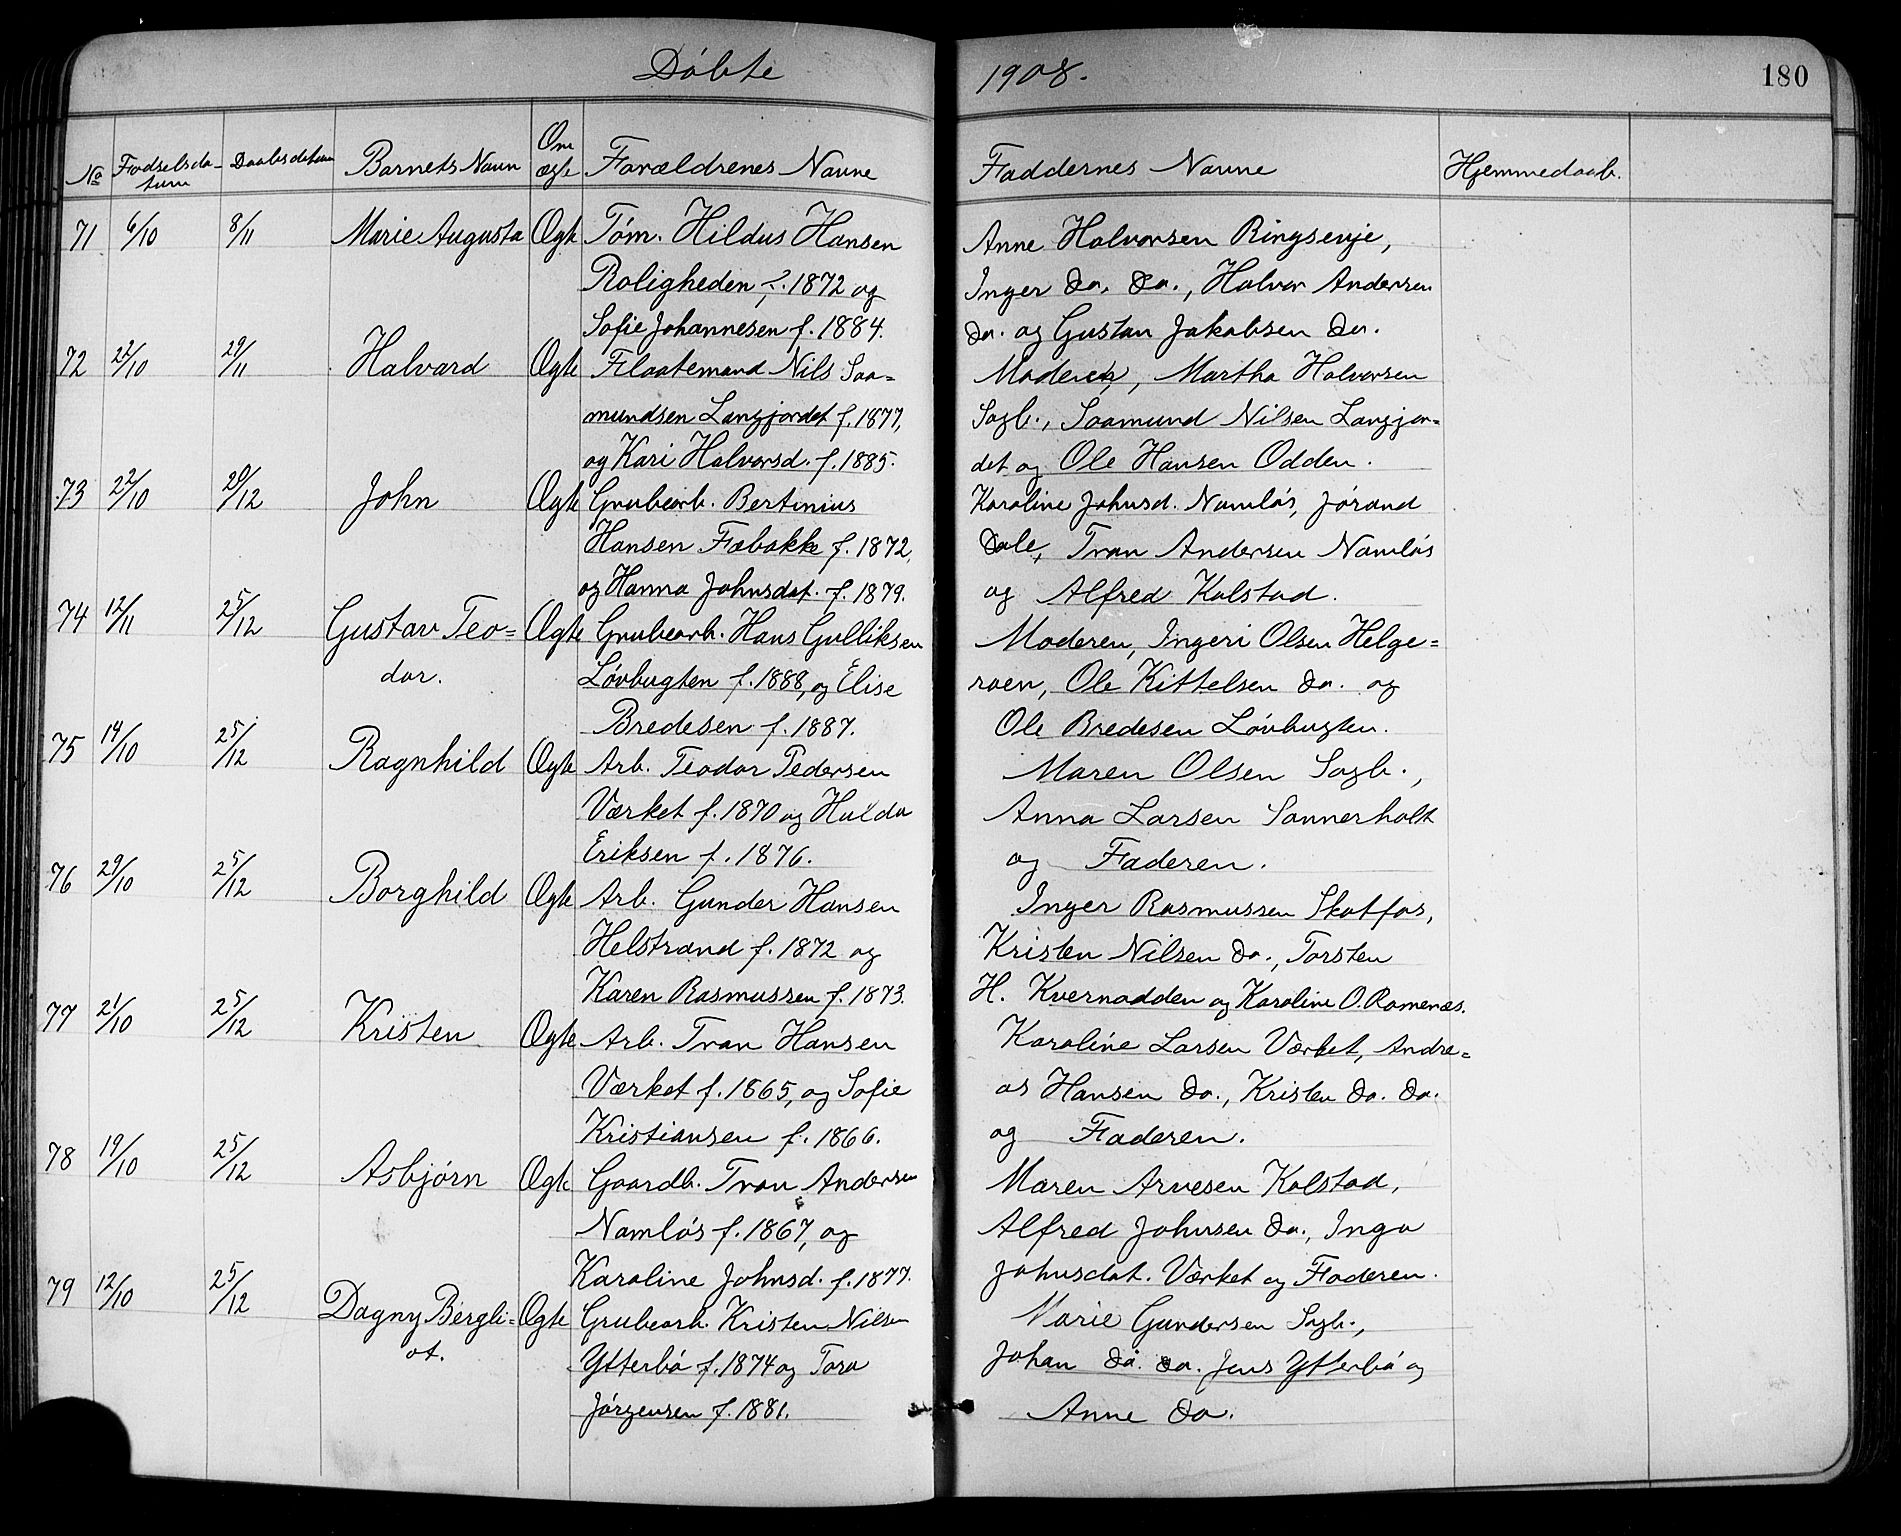 Döbte 1908. 180
No Fødselsdatum Daabsdatum Barnets Navn Om ægte Forældrenes Navne Faddernes Navne Hjemmedaab.
71 6/10 8/11 Marie Augusta Ægte Töm. Hildus Hansen Anne Halvorsen Ringsevje,
Roligheden f. 1872 og Inger do. do., Halvor Andersen
Sofie Johannesen f. 1884. do. og Gustav Jakobsen do.
72 22/10 29/11 Halvard Ægte Flaatemand Nils Saa= Moderen, Martha Halvorsen
mundsen Langjordet f. 1877, Sagb., Saamund Nilsen Langjor=
og Kari Halvorsd. f. 1885. det og Ole Hansen Odden.
73 22/10 20/12 John Ægte Grubearb. Bertinius Karoline Johnsd. Namlös, Jörand
Hansen Fæbakke f. 1872, Dole, Tron Andersen Namlös
og Hanna Johnsdat. f. 1879. og Alfred Kolstad.
74 12/11 25/12 Gustav Teo= Ægte Grubearb. Hans Gulliksen Moderen, Ingeri Olsen Helge=
dor. Lövbugten f. 1888, og Elise roen, Ole Kittelsen do. og
Bredesen f. 1887. Ole Bredesen Lövbugten.
75 14/10 25/12 Ragnhild Ægte Arb. Teodor Pedersen Maren Olsen Sagb.,
Værket f. 1870 og Hulda Anna Larsen Sannerholt
Eriksen f. 1876. og Faderen.
76 29/10 25/12 Borghild Ægte Arb. Gunder Hansen Inger Rasmussen Skotfos,
Helstrand f. 1872 og Kristen Nilsen do., Torsten
Karen Rasmussen f. 1873. H. Kvernodden og Karoline O. Romenæs.
77 21/10 25/12 Kristen Ægte Arb. Tron Hansen Karoline Larsen Værket, Andre=
Værket f. 1865, og Sofie as Hansen do., Kristen do. do.
Kristiansen f. 1866. og Faderen.
78 19/10 25/12 Asbjørn Ægte Gaardb. Tron Andersen Maren Arvesen Kolstad,
Namlös f. 1867, og Alfred Johnsen do., Inga
Karoline Johnsd. f. 1877. Johnsdat. Værket og Faderen.
79 12/10 25/12 Dagny Bergli= Ægte Grubearb. Kristen Nilsen Marie Gundersen Sagb.,
ot. Ytterbö f. 1874 og Tora Johan do. do. Jens Ytterbö og
Jörgensen f. 1881. Anne do.